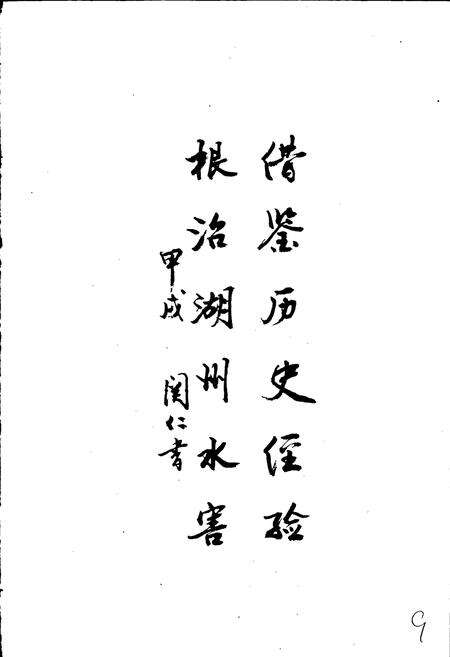 借鉴历史经验
根治湖州水害
甲戌 闵仁书
9